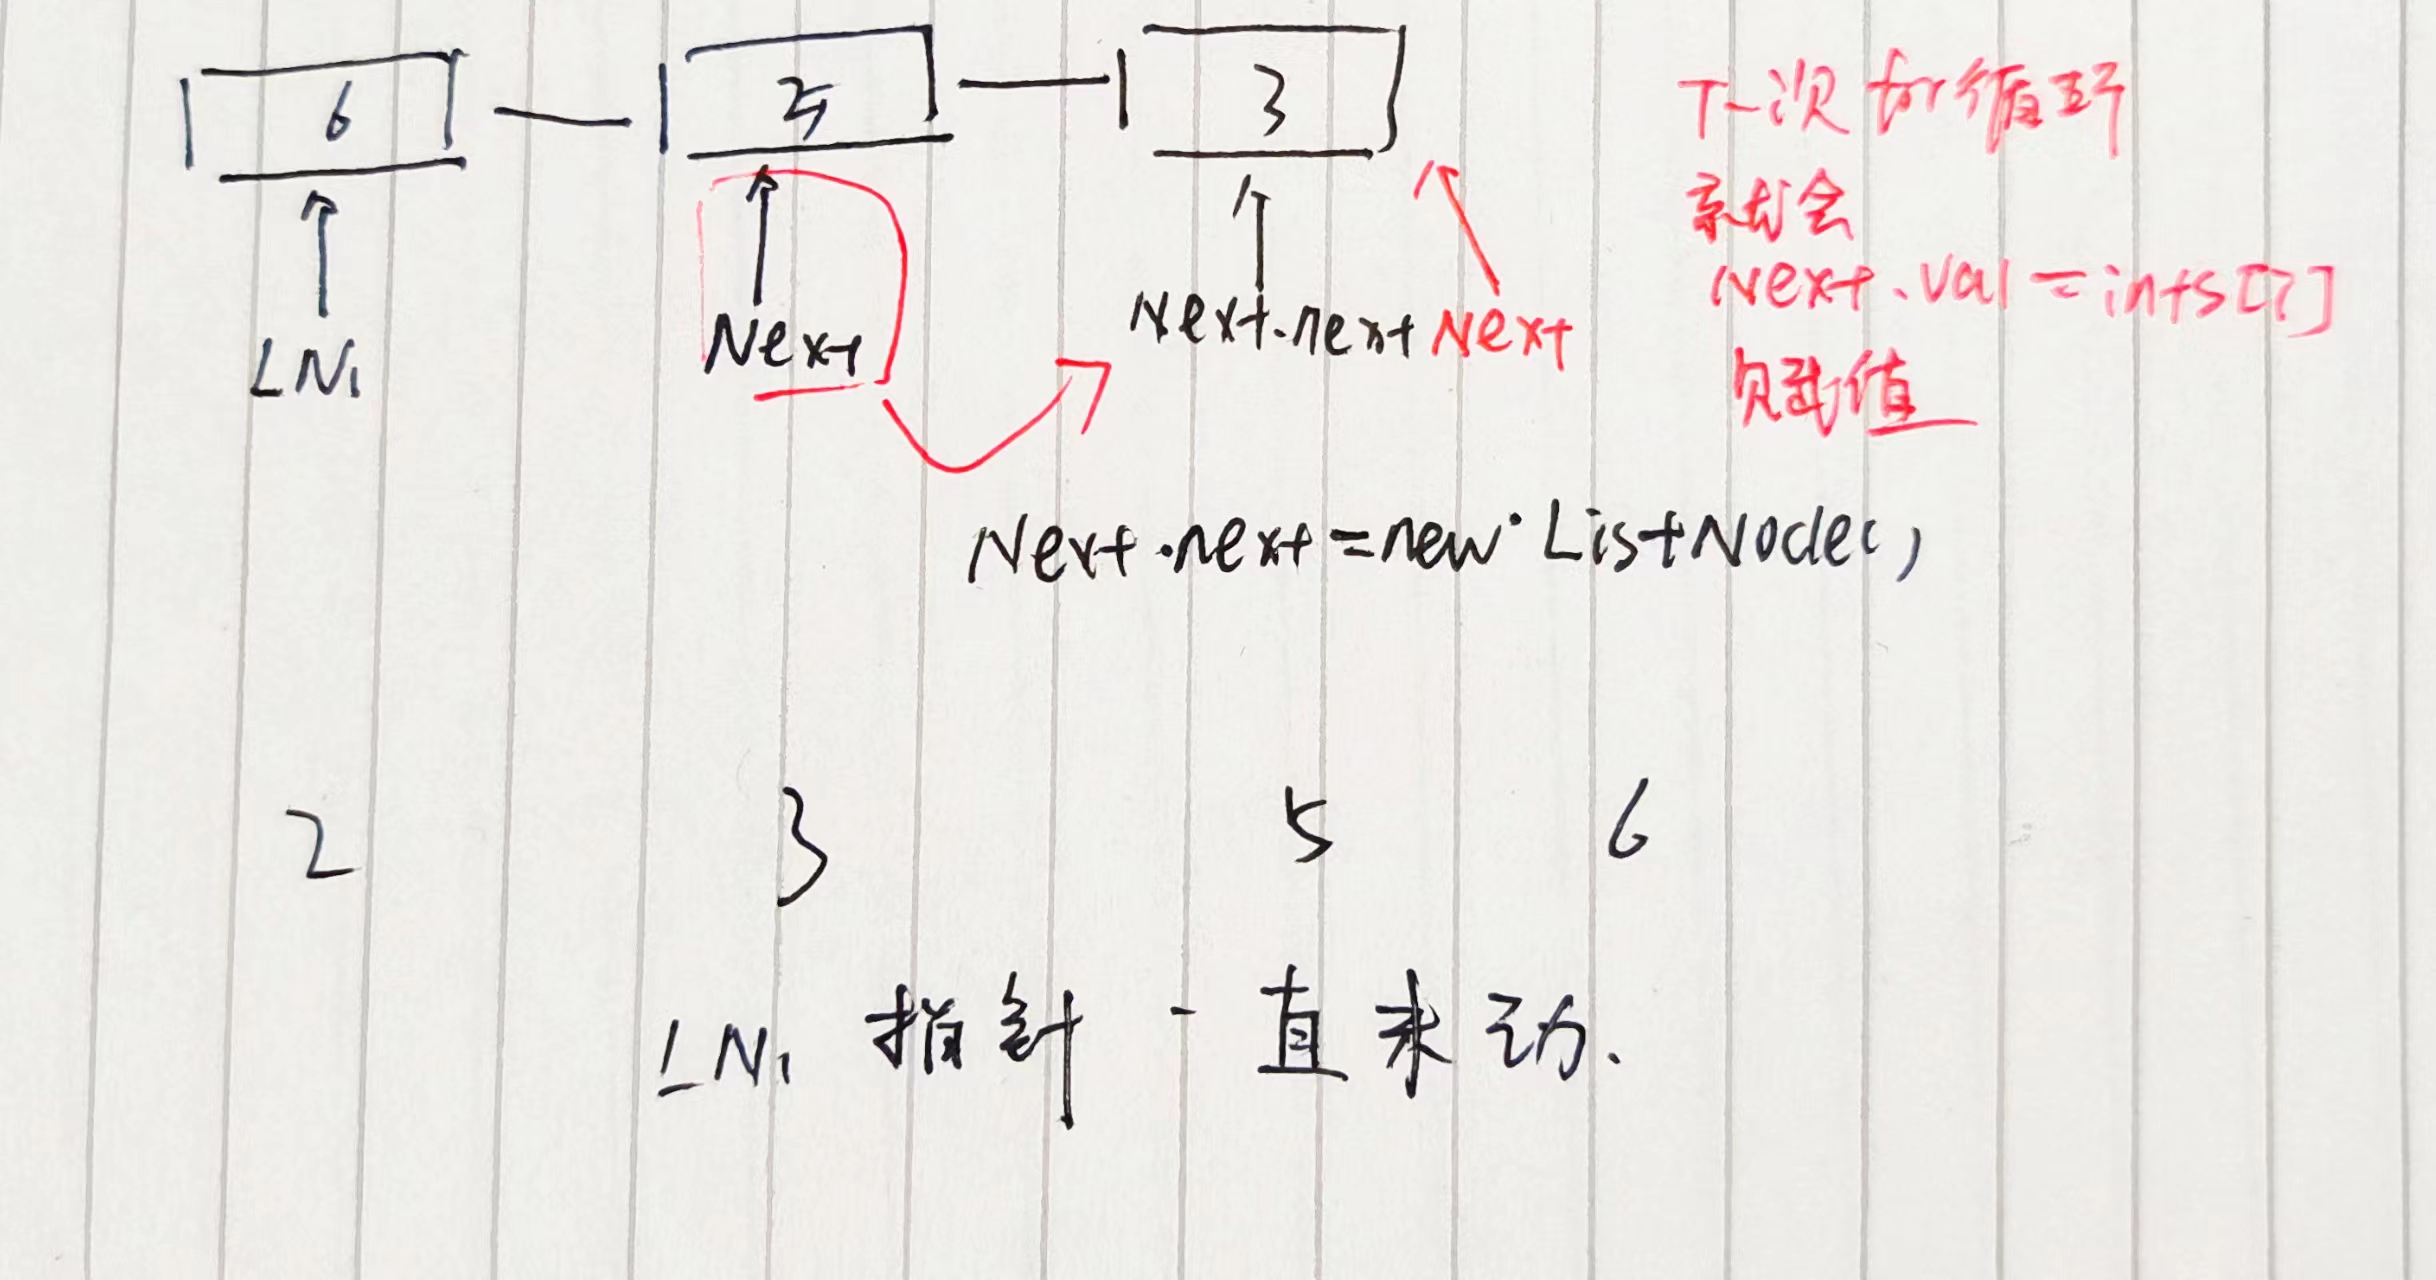 6 5 3
LN₁ Next Next.next Next
下一次 for 循环
就会
Next.val = ints[i]
赋值
Next.next = new ListNode()
2 3 5 6
LN₁ 指针一直未动.